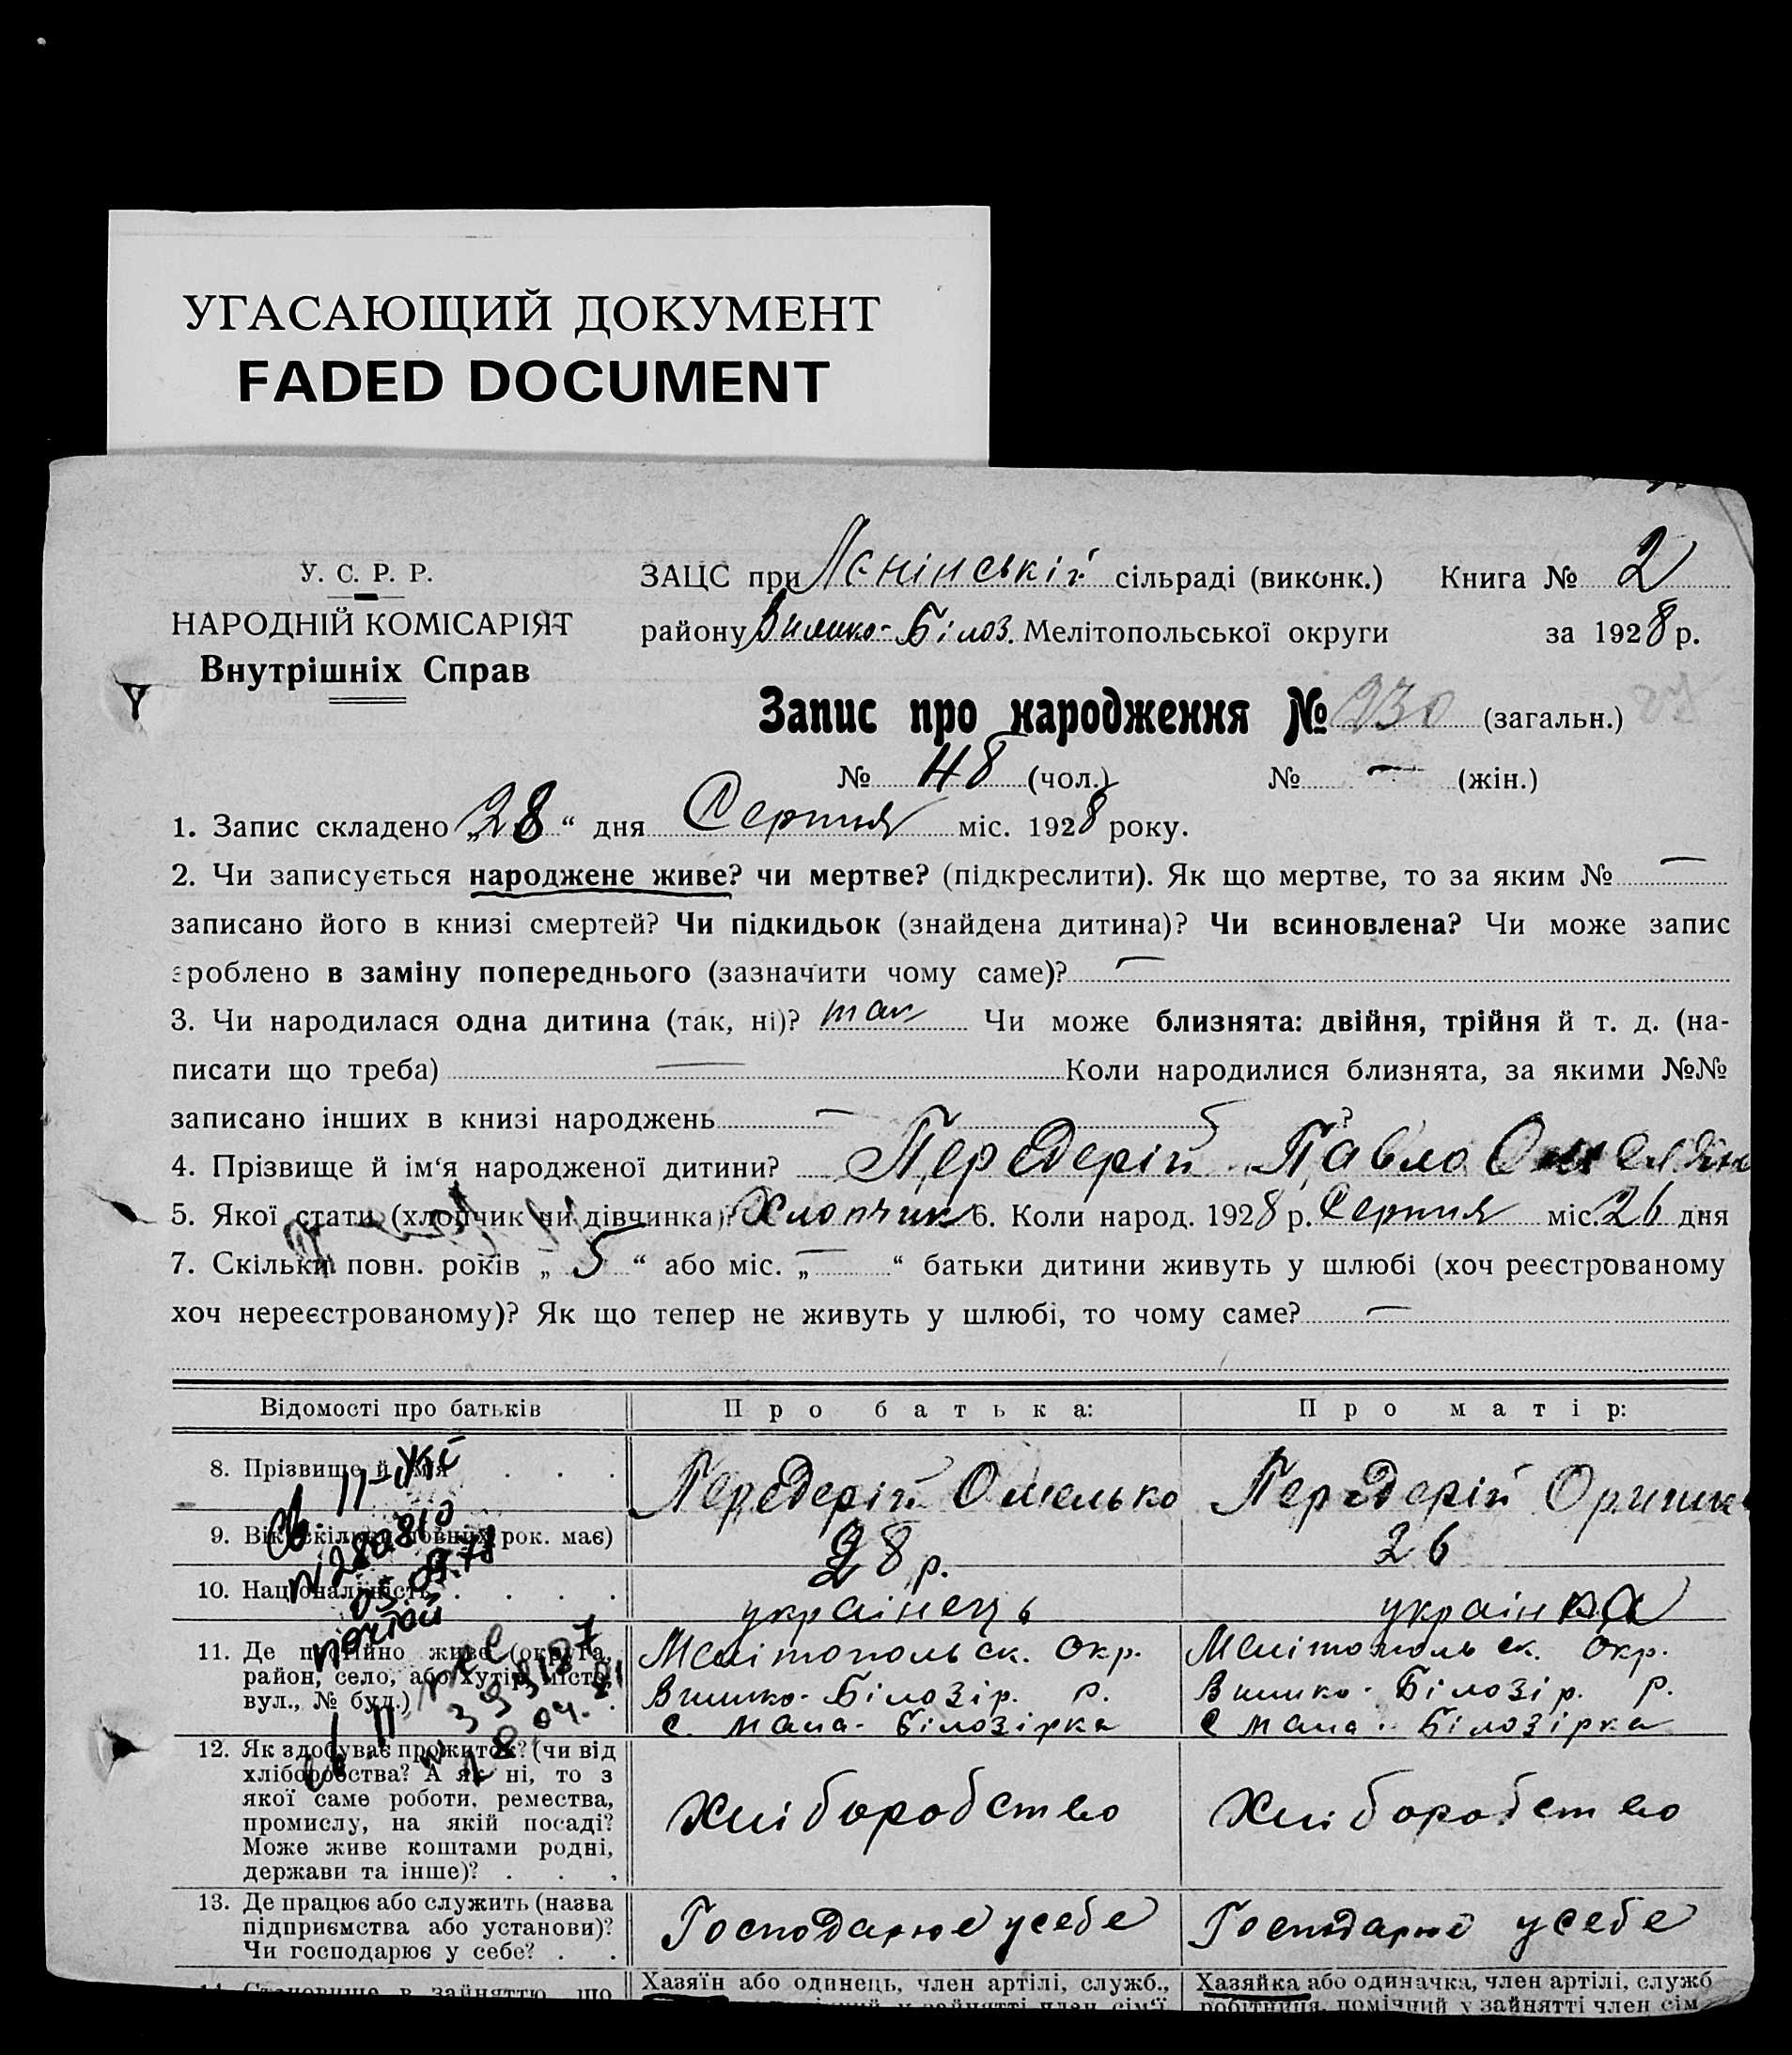 УГАСАЮЩИЙ ДОКУМЕНТ
FADED DOCUMENT
У. С. Р. Р.
НАРОДНІЙ КОМІСАРІЯТ
Внутрішніх Справ
ЗАЦС при Лєнінській сільраді (виконк.) Книга № 2
району Велико-Білоз. Мелітопольської округи за 1928 р.
Запис про народження № 230 (загальн.)
№ 48 (чол.) № — (жін.)
1. Запис складено „28“ дня Серпня міс. 1928 року.
2. Чи записується народжене живе? чи мертве? (підкреслити). Як що мертве, то за яким № —
записано його в книзі смертей? Чи підкидьок (знайдена дитина)? Чи всиновлена? Чи може запис
зроблено в заміну попереднього (зазначити чому саме)? —
3. Чи народилася одна дитина (так, ні)? так Чи може близнята: двійня, трійня й т. д. (на-
писати що треба) — Коли народилися близнята, за якими №№
записано інших в книзі народжень — ?
4. Прізвище й ім‘я народженої дитини? Передерій Павло
5. Якої стати (хлопчик чи дівчинка)? Хлопчик 6. Коли народ. 1928 р. Серпня міс. 26 дня
7. Скільки повн. років „5“ або міс. „—“ батьки дитини живуть у шлюбі (хоч реєстрованому
хоч нереєстрованому)? Як що тепер не живуть у шлюбі, то чому саме? —
Відомості про батьків Про батька: Про матір:
8. Прізвище й ім‘я . . . Передерій Омелько Передерій
9. Вік (скільки повних рок. має) 28 р. 26
10. Національність . . . . українець українка
11. Де постійно живе (округа,
район, село, або хутір, місто,
вул., № буд.) .
Мелітопольск. Окр.
Велико-Білозір. р.
с. Мала-Білозірка
Мелітопольск. Окр.
Велико-Білозір. р.
с Мала-Білозірка
12. Як здобуває прожиток? (чи від
хліборобства? А як ні, то з
якої саме роботи, ремества,
промислу, на якій посаді?
Може живе коштами родні,
держави та інше)? . . .
Хліборобство Хліборобство
13. Де працює або служить (назва
підприємства або установи)?
Чи господарює у себе? . .
Господарює у себе Господарює у себе
14. Становище в зайняттю, що
Хазяїн або одинець, член артілі, служб.,
Хазяйка або одиначка, член артілі, служб
робітниця, помічний у зайнятті член сім